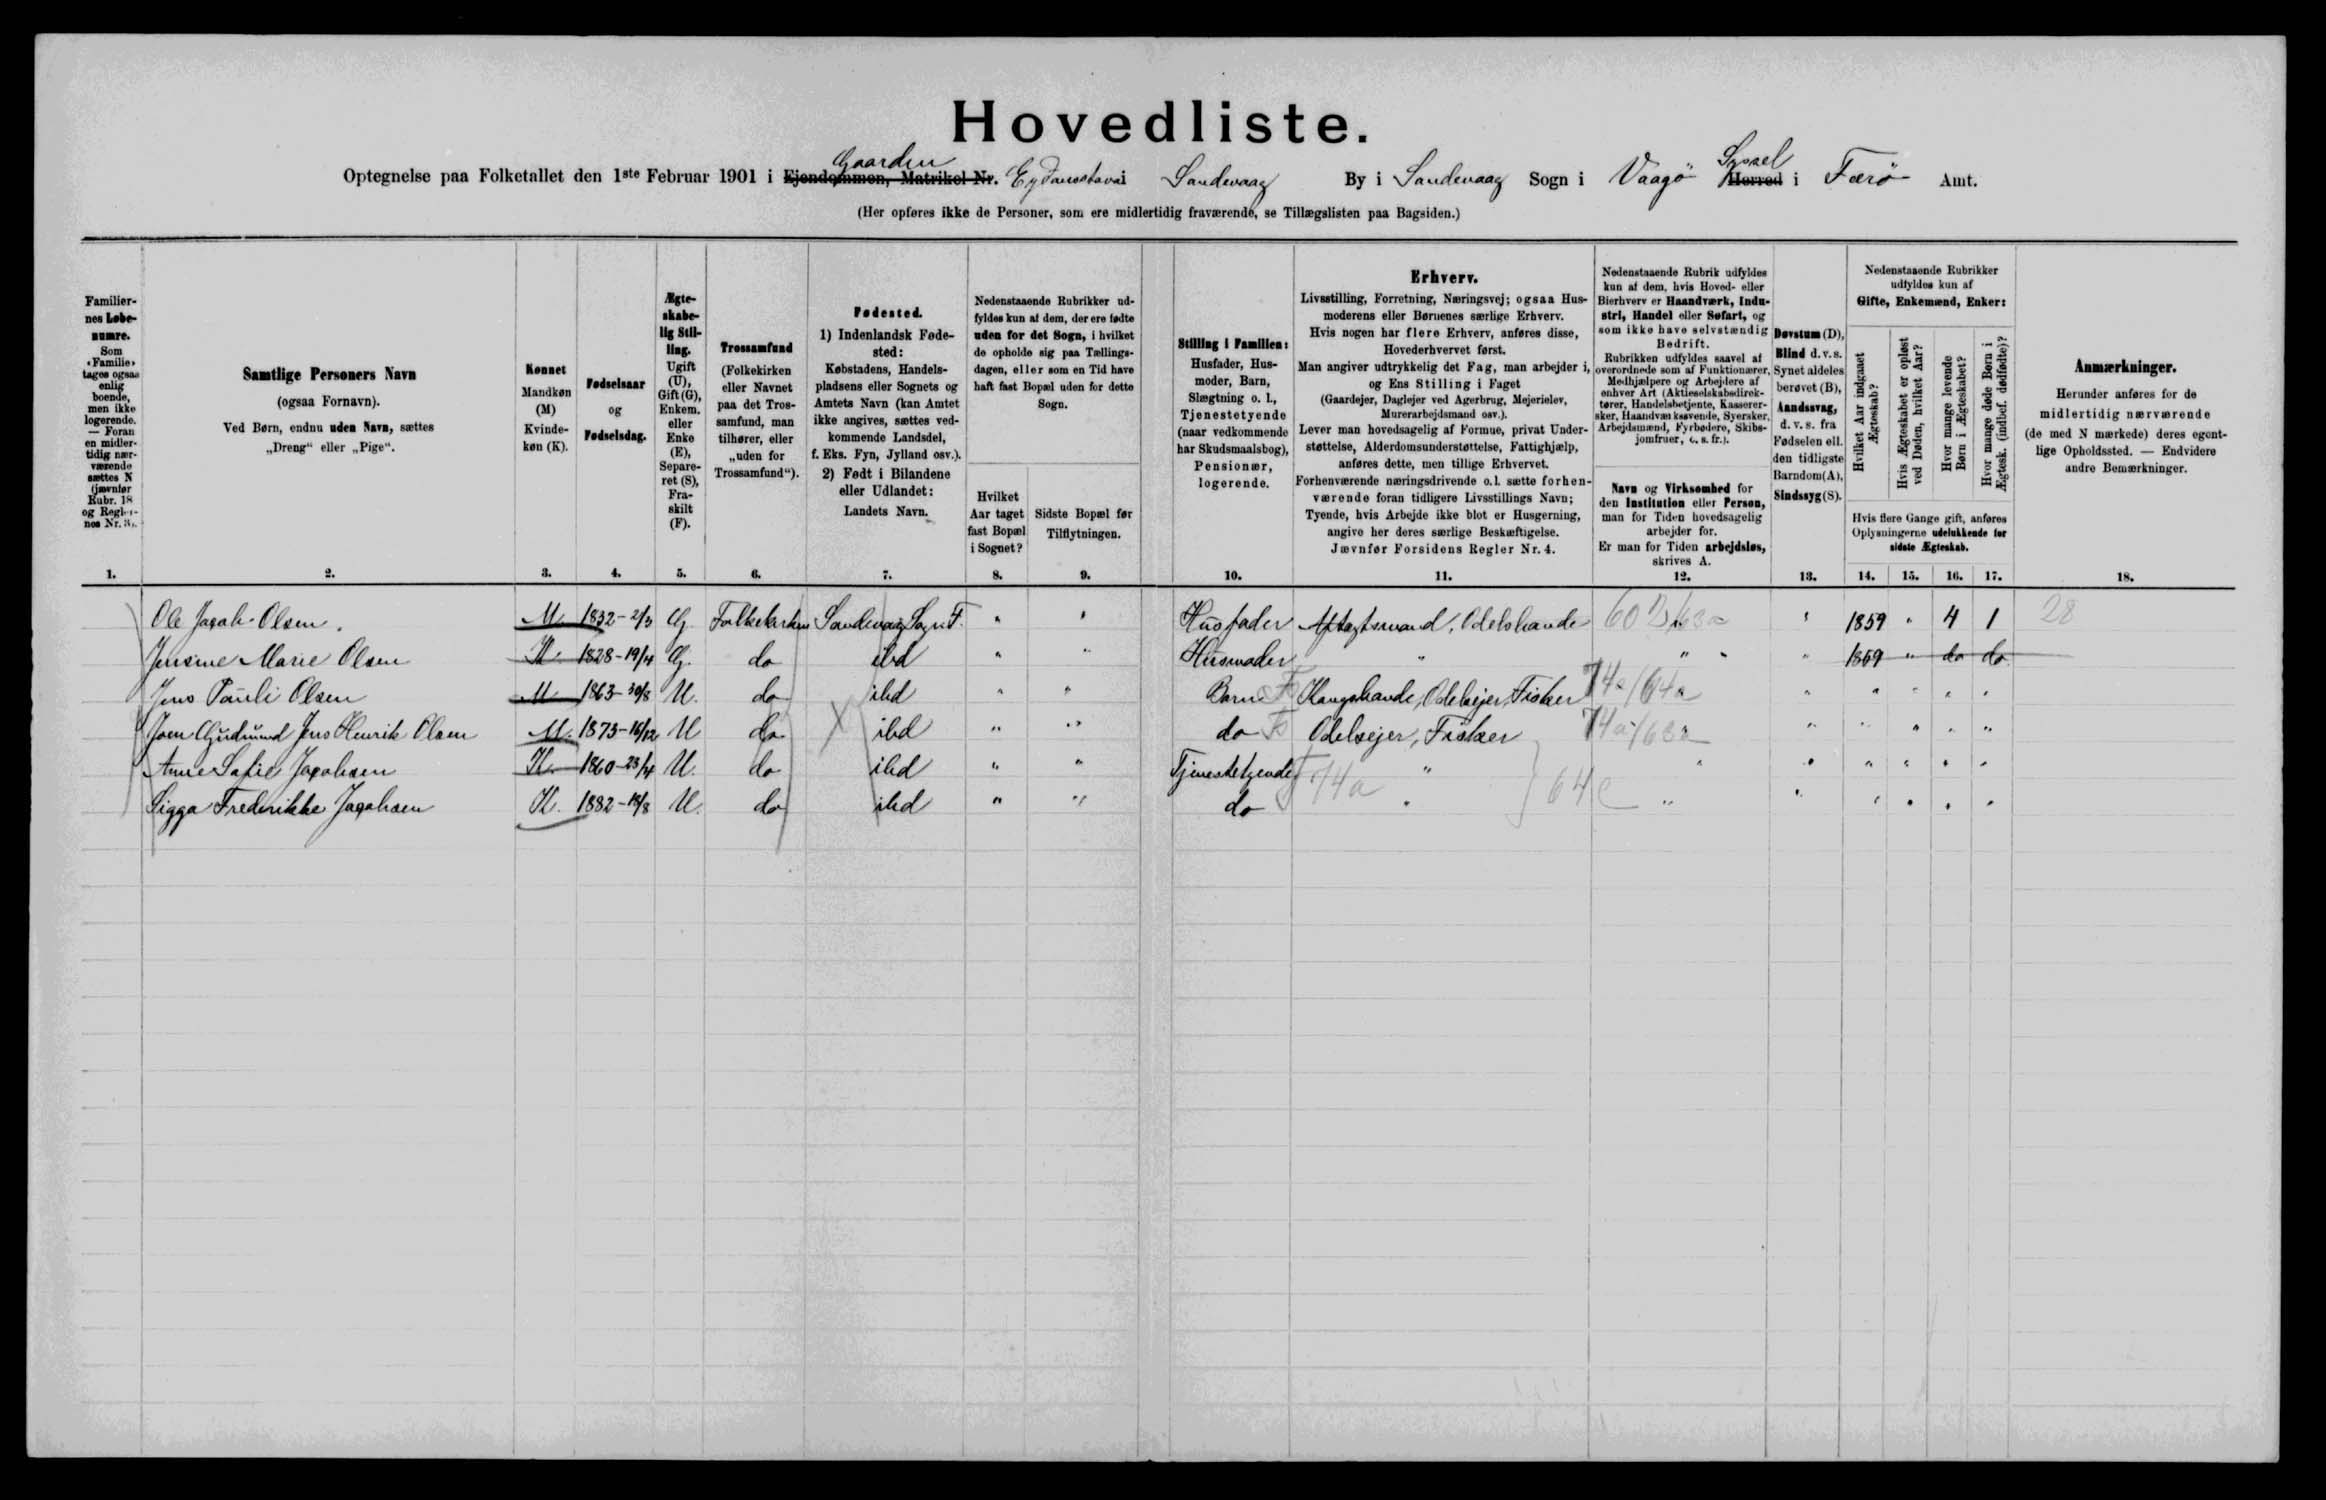 Hovedliste.
Gaarden Syssel
Optegnelse paa Folketallet den 1ste Februar 1901 i Ejendommen, Matrikel Nr. i Sandevaag By i Sandevaag Sogn i Vaagö Herred i Færö Amt.
(Her opføres ikke de Personer, som ere midlertidig fraværende, se Tillægslisten paa Bagsiden.)
Familier-
nes Løbe-
numre.
Som
«Familie»
tages ogsaa
enlig
boende,
men ikke
logerende.
— Foran
en midler-
tidig nær-
værende
sættes N
(jævnfør
Rubr. 18
og Regler-
nes Nr. 3).
Samtlige Personers Navn
(ogsaa Fornavn).
Ved Børn, endnu uden Navn, sættes
„Dreng“ eller „Pige“.
Kønnet
Mandkøn
(M)
Kvinde-
køn (K).
Fødselsaar
og
Fødselsdag.
Ægte-
skabe-
lig Stil-
ling.
Ugift
(U),
Gift (G),
Enkem.
eller
Enke
(E),
Separe-
ret (S),
Fra-
skilt
(F).
Trossamfund
(Folkekirken
eller Navnet
paa det Tros-
samfund, man
tilhører, eller
„uden for
Trossamfund“).
Fødested.
1) Indenlandsk Føde-
sted:
Købstadens, Handels-
pladsens eller Sognets og
Amtets Navn (kan Amtet
ikke angives, sættes ved-
kommende Landsdel,
f. Eks. Fyn, Jylland osv.).
2) Født i Bilandene
eller Udlandet:
Landets Navn.
Nedenstaaende Rubrikker ud-
fyldes kun af dem, der ere fødte
uden for det Sogn, i hvilket
de opholde sig paa Tællings-
dagen, eller som en Tid have
haft fast Bopæl uden for dette
Sogn.
Hvilket
Aar taget
fast Bopæl
i Sognet?
Sidste Bopæl før
Tilflytningen.
Stilling i Familien:
Husfader, Hus-
moder, Barn,
Slægtning o. l.,
Tjenestetyende
(naar vedkommende
har Skudsmaalsbog),
Pensionær,
logerende.
Erhverv.
Livsstilling, Forretning, Næringsvej; ogsaa Hus-
moderens eller Børnenes særlige Erhverv.
Hvis nogen har flere Erhverv, anføres disse,
Hovederhvervet først.
Man angiver udtrykkelig det Fag, man arbejder i,
og Ens Stilling i Faget
(Gaardejer, Daglejer ved Agerbrug, Mejerielev,
Murerarbejdsmand osv.).
Lever man hovedsagelig af Formue, privat Under-
støttelse, Alderdomsunderstøttelse, Fattighjælp,
anføres dette, men tillige Erhvervet.
Forhenværende næringsdrivende o.l. sætte forhen-
værende foran tidligere Livsstillings Navn;
Tyende, hvis Arbejde ikke blot er Husgerning,
angive her deres særlige Beskæftigelse.
Jævnfør Forsidens Regler Nr. 4.
Nedenstaaende Rubrik udfyldes
kun af dem, hvis Hoved- eller
Bierhverv er Haandværk, Indu-
stri, Handel eller Søfart, og
som ikke have selvstændig
Bedrift.
Rubrikken udfyldes saavel af
overordnede som af Funktionærer,
Medhjælpere og Arbejdere af
enhver Art (Aktieselskabsdirek-
tører, Handelsbetjente, Kasserer-
sker, Haandværkssvende, Syersker,
Arbejdsmænd, Fyrbødere, Skibs-
jomfruer, o. s. fr.).
Navn og Virksomhed for
den Institution eller Person,
man for Tiden hovedsagelig
arbejder for.
Er man for Tiden arbejdsløs,
skrives A.
Døvstum (D),
Blind d. v. s.
Synet aldeles
berøvet (B),
Aandssvag,
d. v. s. fra
Fødselen ell.
den tidligste
Barndom (A),
Sindssyg (S).
Nedenstaaende Rubrikker
udfyldes kun af
Gifte, Enkemænd, Enker:
Hvilket Aar indgaaet
Ægteskab?
Hvis Ægteskabet er opløst
ved Døden, hvilket Aar?
Hvor mange levende
Børn i Ægteskabet?
Hvor mange døde Børn i
Ægtesk. (indbef. dødfødte)?
Hvis flere Gange gift, anføres
Oplysningerne udelukkende for
sidste Ægteskab.
Anmærkninger.
Herunder anføres for de
midlertidig nærværende
(de med N mærkede) deres egent-
lige Opholdssted. — Endvidere
andre Bemærkninger.
1. 2. 3. 4. 5. 6. 7. 8. 9. 10. 11. 12. 13. 14. 15. 16. 17. 18.
Ole Jacob Olsen. M. 1832-2/3 G. Folkekirken Sandevaag Sogn F. " " Husfader Aftægtsmand, Odelsbonde 60 63a " 1859 " 4 1 28
Jensine Marie Olsen K. 1828-19/4 G. do ibd " " Husmoder " " " 1859 " do do
Jens Pauli Olsen M 1863-30/8 U. do ibd " " Barn Kongsbonde, Odelsejer, Fisker 74a/64a " " " " "
Joen Gudmund Jens Henrik Olsen M. 1873-16/12 U do ibd " " do Odelsejer, Fisker 74a/63a " " " " "
Anne Sofie Jacobsen K. 1860-23/4 U. do ibd " " Tjenestetyende " " " " " " "
Sigga Frederikke Jacobsen K. 1882-18/8 U. do ibd " " do 74a " 64e " " " " " "